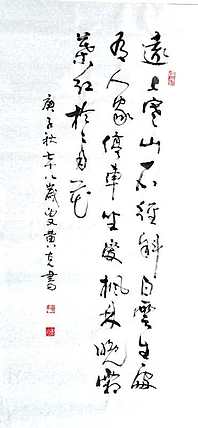 遠上寒山石徑斜白雲生處
有人家停車坐愛楓林晚霜
葉紅於二月花
庚子秋七十八歲叟黄書